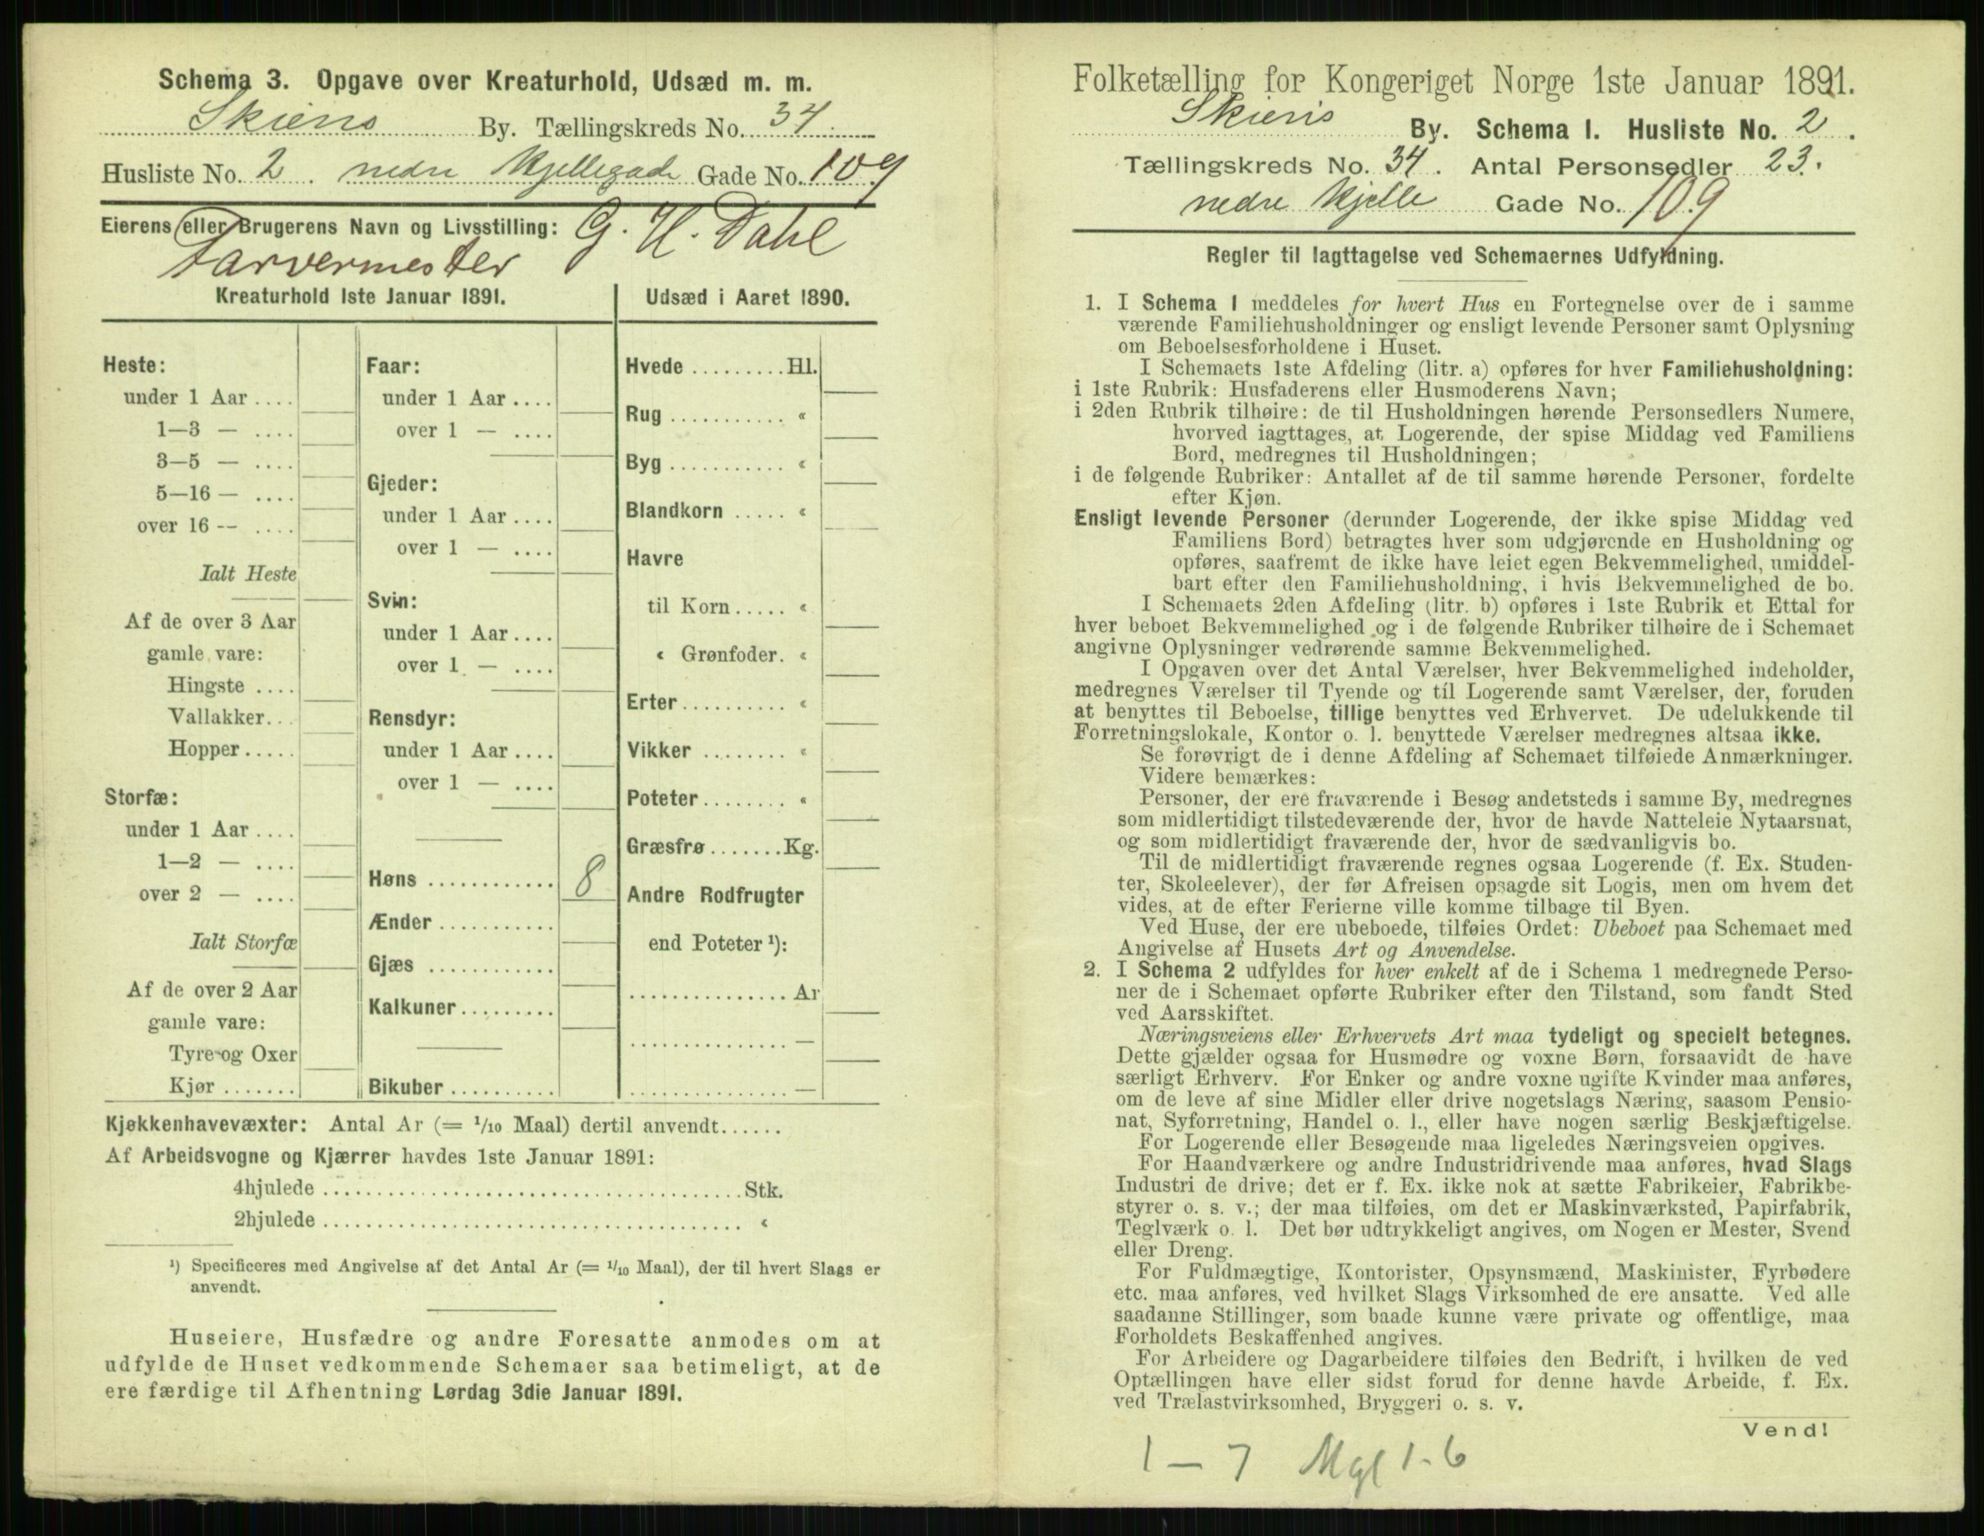 Schema 3. Opgave over Kreaturhold, Udsæd m. m.
Skiens By. Tællingskreds No. 34.
Husliste No. 2. nedre Kjellegade Gade No. 109
Eierens eller Brugerens Navn og Livsstilling: G. H. Dahl
Farvermester
Kreaturhold 1ste Januar 1891.
Heste:
under 1 Aar ....
1—3 — ....
3—5 — ....
5—16 — ....
over 16 — ....
Ialt Heste
Af de over 3 Aar
gamle vare:
Hingste ....
Vallakker...
Hopper.....
Storfæ:
under 1 Aar ....
1—2 — ....
over 2 — ....
Ialt Storfæ
Af de over 2 Aar
gamle vare:
Tyre og Oxer
Kjør .......
Faar:
under 1 Aar ....
over 1 — ....
Gjeder:
under 1 Aar ....
over 1 — ....
Svin:
under 1 Aar ....
over 1 — ....
Rensdyr:
under 1 Aar ....
over 1 — ....
Høns ............ 8
Ænder ...........
Gjæs ............
Kalkuner.........
Bikuber ..........
Udsæd i Aaret 1890.
Hvede .........Hl.
Rug ........... «
Byg ........... «
Blandkorn ..... «
Havre
til Korn ..... «
« Grønfoder. «
Erter.......... «
Vikker ........ «
Poteter........ «
Græsfrø.......Kg.
Andre Rodfrugter
end Poteter ¹):
............... Ar
............... —
............... —
Kjøkkenhavevæxter: Antal Ar (= 1/10 Maal) dertil anvendt......
Af Arbeidsvogne og Kjærrer havdes 1ste Januar 1891:
4hjulede ....................................Stk.
2hjulede .................................... «
¹) Specificeres med Angivelse af det Antal Ar (= 1/10 Maal), der til hvert Slags er
anvendt.
Huseiere, Husfædre og andre Foresatte anmodes om at
udfylde de Huset vedkommende Schemaer saa betimeligt, at de
ere færdige til Afhentning Lørdag 3die Januar 1891.
Folketælling for Kongeriget Norge 1ste Januar 1891.
Skiens By. Schema I. Husliste No. 2.
Tællingskreds No. 34. Antal Personsedler 23.
nedre Kjelle Gade No. 109
Regler til Iagttagelse ved Schemaernes Udfyldning.
1. I Schema 1 meddeles for hvert Hus en Fortegnelse over de i samme
værende Familiehusholdninger og ensligt levende Personer samt Oplysning
om Beboelsesforholdene i Huset.
I Schemaets 1ste Afdeling (litr. a) opføres for hver Familiehusholdning:
i 1ste Rubrik: Husfaderens eller Husmoderens Navn;
i 2den Rubrik tilhøire: de til Husholdningen hørende Personsedlers Numere,
hvorved iagttages, at Logerende, der spise Middag ved Familiens
Bord, medregnes til Husholdningen;
i de følgende Rubriker: Antallet af de til samme hørende Personer, fordelte
efter Kjøn.
Ensligt levende Personer (derunder Logerende, der ikke spise Middag ved
Familiens Bord) betragtes hver som udgjørende en Husholdning og
opføres, saafremt de ikke have leiet egen Bekvemmelighed, umiddel-
bart efter den Familiehusholdning, i hvis Bekvemmelighed de bo.
I Schemaets 2den Afdeling (litr. b) opføres i 1ste Rubrik et Ettal for
hver beboet Bekvemmelighed og i de følgende Rubriker tilhøire de i Schemaet
angivne Oplysninger vedrørende samme Bekvemmelighed.
I Opgaven over det Antal Værelser, hver Bekvemmelighed indeholder,
medregnes Værelser til Tyende og til Logerende samt Værelser, der, foruden
at benyttes til Beboelse, tillige benyttes ved Erhvervet. De udelukkende til
Forretningslokale, Kontor o. l. benyttede Værelser medregnes altsaa ikke.
Se forøvrigt de i denne Afdeling af Schemaet tilføiede Anmærkninger.
Videre bemærkes:
Personer, der ere fraværende i Besøg andetsteds i samme By, medregnes
som midlertidigt tilstedeværende der, hvor de havde Natteleie Nytaarsnat,
og som midlertidigt fraværende der, hvor de sædvanligvis bo.
Til de midlertidigt fraværende regnes ogsaa Logerende (f. Ex. Studen-
ter, Skoleelever), der før Afreisen opsagde sit Logis, men om hvem det
vides, at de efter Ferierne ville komme tilbage til Byen.
Ved Huse, der ere ubeboede, tilføies Ordet: Ubeboet paa Schemaet med
Angivelse af Husets Art og Anvendelse.
2. I Schema 2 udfyldes for hver enkelt af de i Schema 1 medregnede Perso-
ner de i Schemaet opførte Rubriker efter den Tilstand, som fandt Sted
ved Aarsskiftet.
Næringsveiens eller Erhvervets Art maa tydeligt og specielt betegnes.
Dette gjælder ogsaa for Husmødre og voxne Børn, forsaavidt de have
særligt Erhverv. For Enker og andre voxne ugifte Kvinder maa anføres,
om de leve af sine Midler eller drive nogetslags Næring, saasom Pensio-
nat, Syforretning, Handel o. l., eller have nogen særlig Beskjæftigelse.
For Logerende eller Besøgende maa ligeledes Næringsveien opgives.
For Haandværkere og andre Industridrivende maa anføres, hvad Slags
Industri de drive; det er f. Ex. ikke nok at sætte Fabrikeier, Fabrikbe-
styrer o. s. v.; der maa tilføies, om det er Maskinværksted, Papirfabrik,
Teglværk o. l. Det bør udtrykkeligt angives, om Nogen er Mester, Svend
eller Dreng.
For Fuldmægtige, Kontorister, Opsynsmænd, Maskinister, Fyrbødere
etc. maa anføres, ved hvilket Slags Virksomhed de ere ansatte. Ved alle
saadanne Stillinger, som baade kunne være private og offentlige, maa
Forholdets Beskaffenhed angives.
For Arbeidere og Dagarbeidere tilføies den Bedrift, i hvilken de ved
Optællingen have eller sidst forud for denne havde Arbeide, f. Ex.
ved Trælastvirksomhed, Bryggeri o. s. v.
Vend!
1 — 7 Mgl 1-6